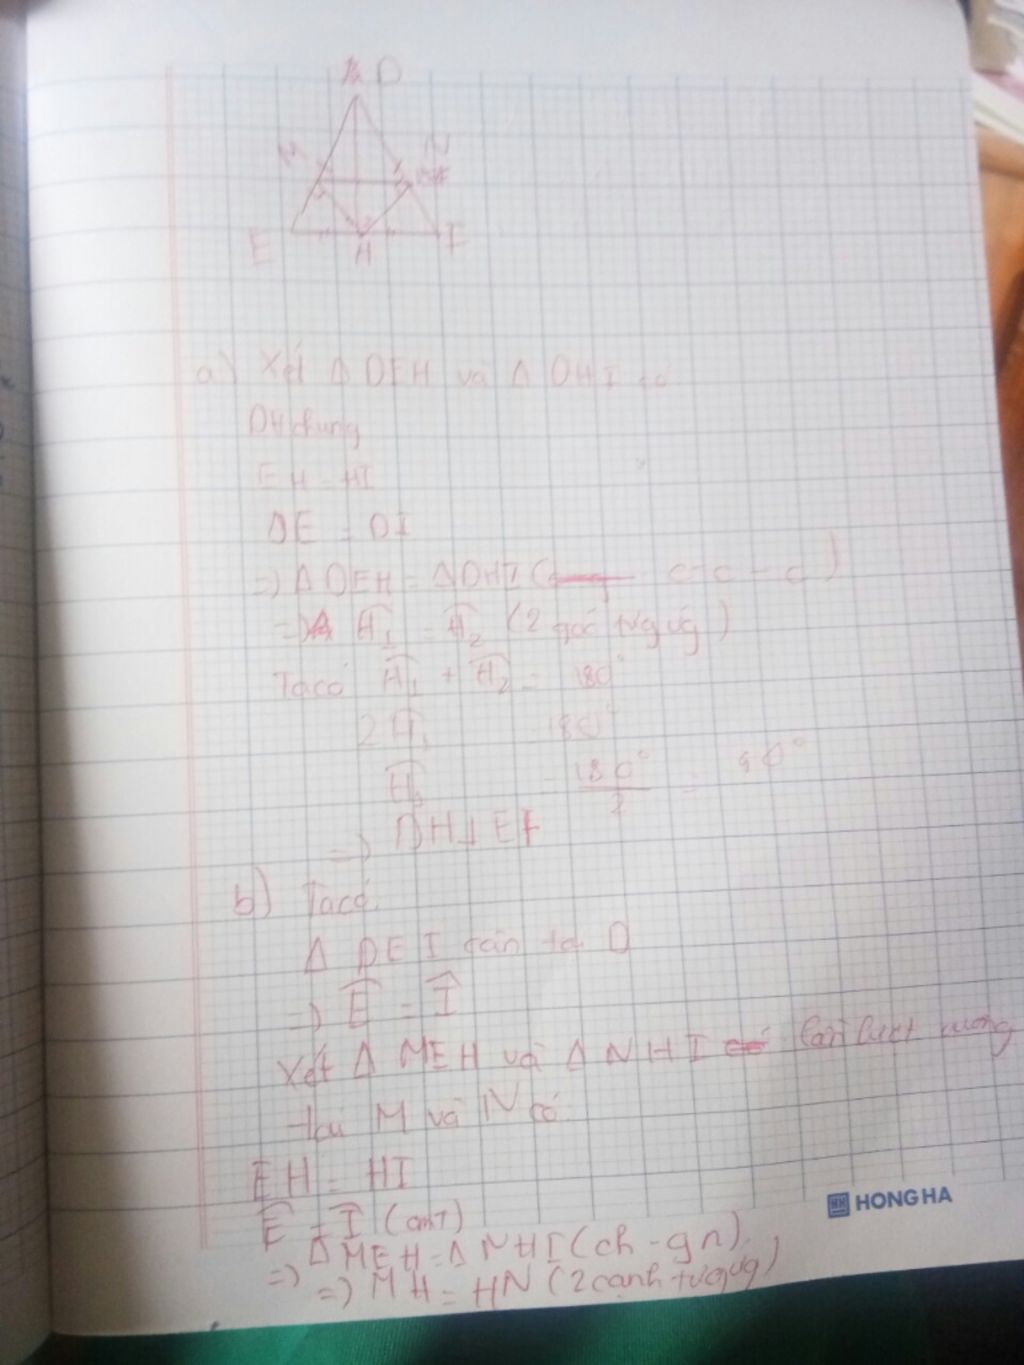 D
M N
E H I
a) Xét Δ DEH và Δ DHI có
DH chung
EH = HI
DE = DI
=) Δ DEH = Δ DHI ( c-c-c)
=) Ĥ₁ = Ĥ₂ (2 góc tưg ứg)
Ta có Ĥ₁ + Ĥ₂ = 180°
2Ĥ₁ 180°
Ĥ₁ = 180°/2 = 90°
=) DH ⊥ EI
b) Ta có
Δ DEI cân tại D
=) Ê = Î
Xét Δ MEH và Δ NHI lần lượt vuông
tại M và N có
EH = HI
Ê = Î (cmT)
=) Δ MEH = Δ NHI (ch - gn)
=) MH = HN (2 cạnh tưg ứg)
HONG HA